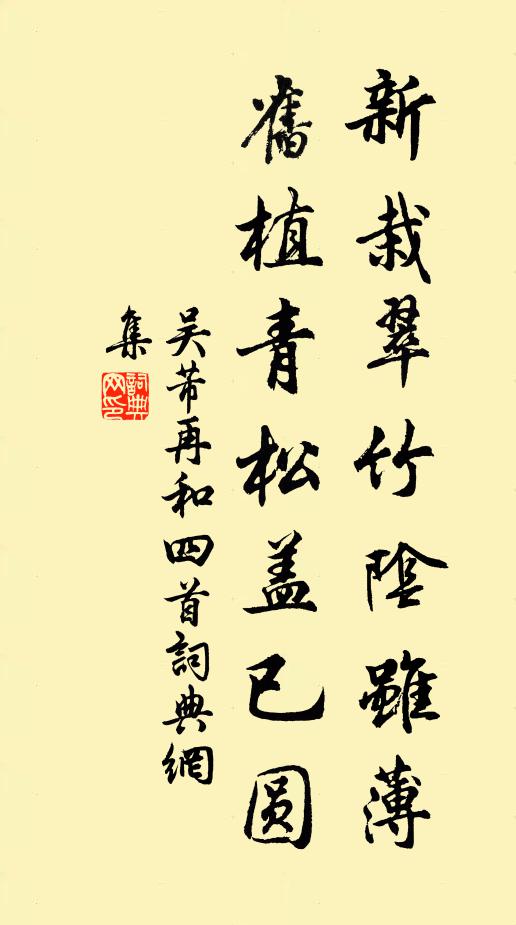 新栽翠竹陰雖薄
舊植青松盖已圆
吴芾再和四首詞典網
集
詞典网印